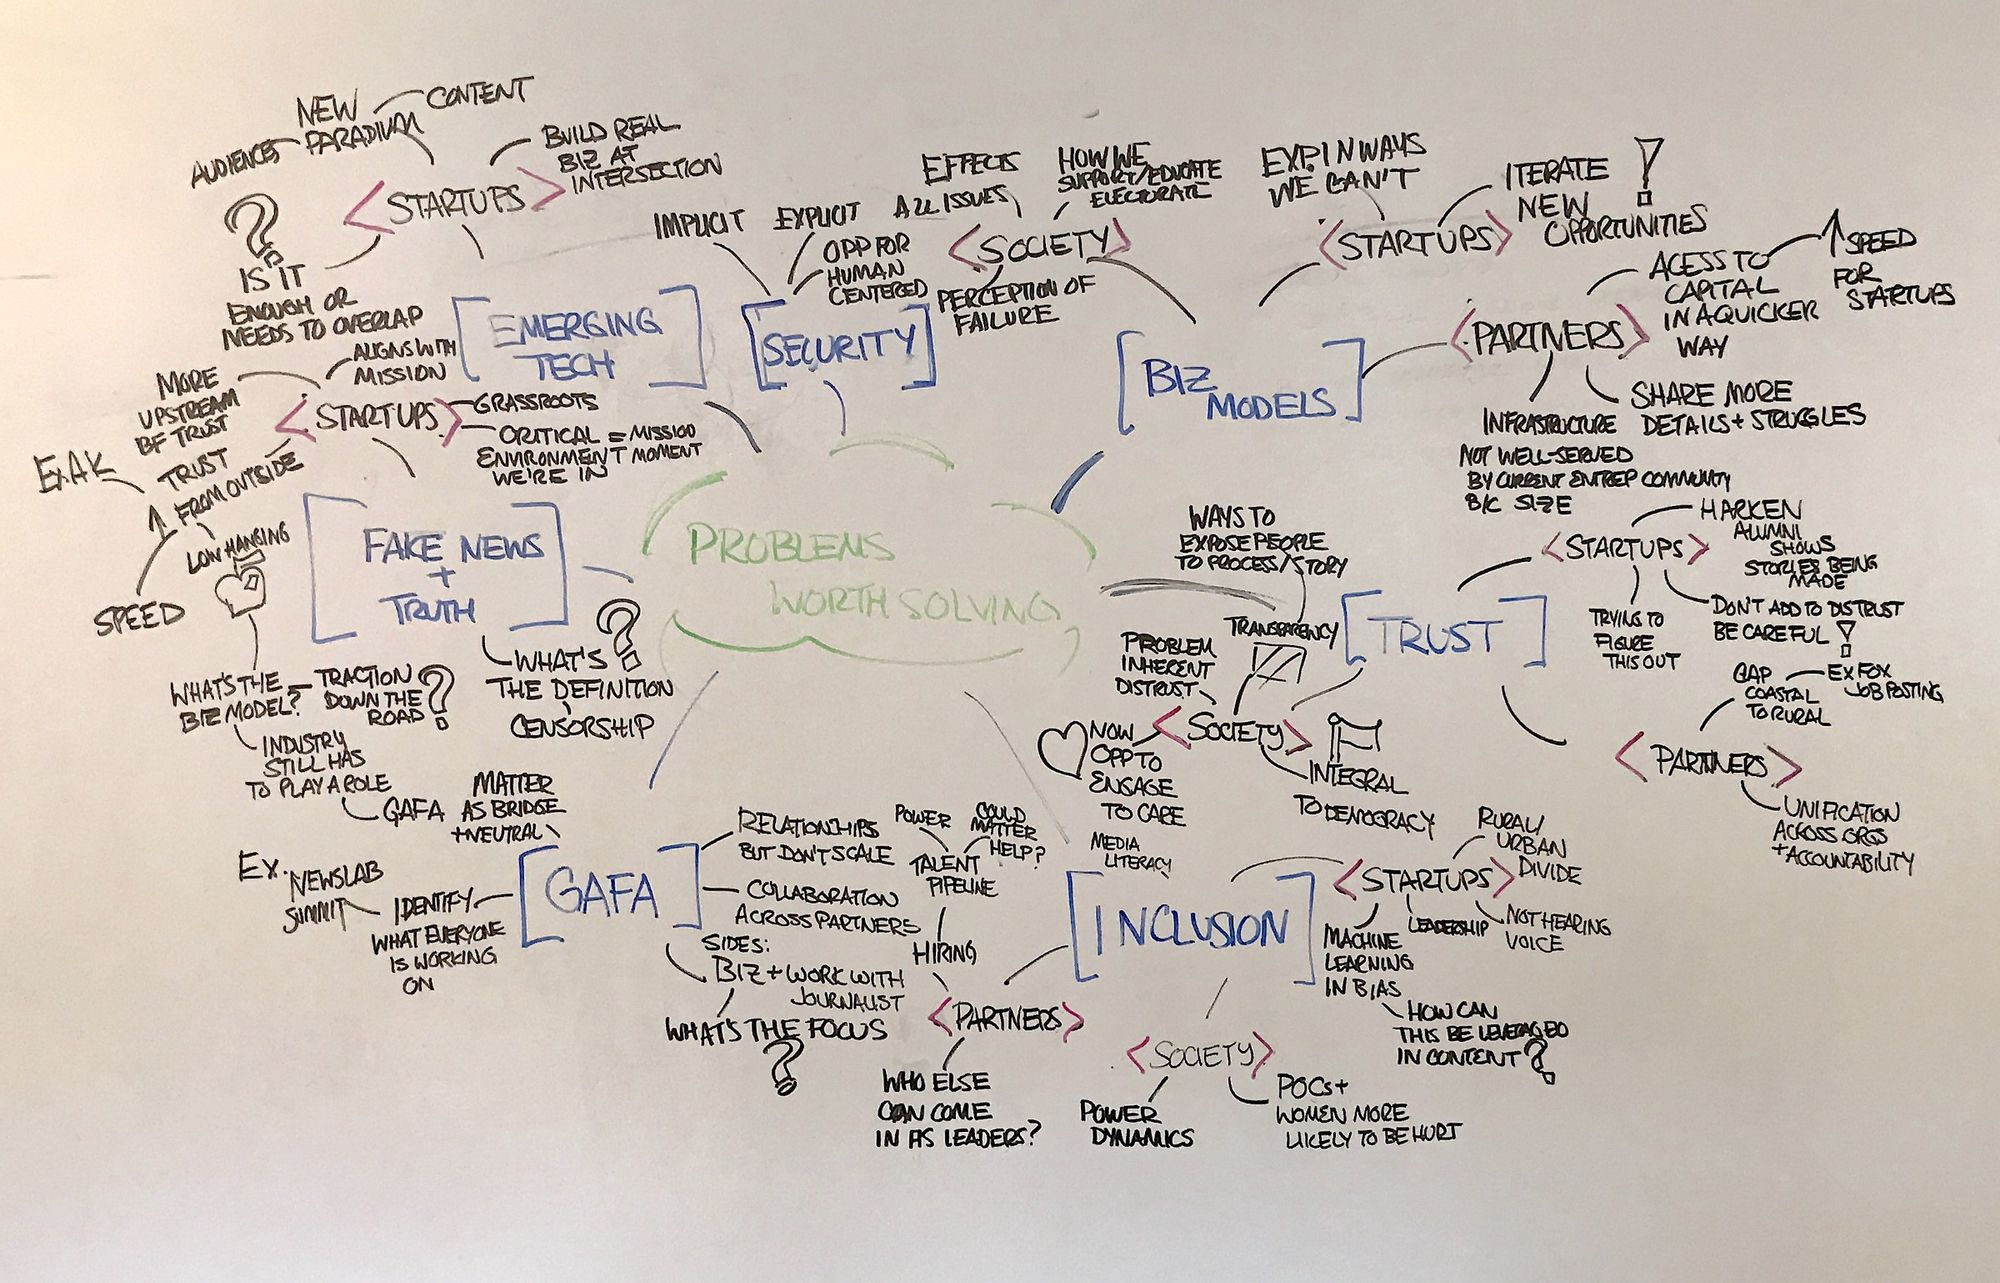 NEW
PARADIUM
CONTENT
AUDIENCES
BUILD REAL
BIZ AT
INTERSECTION
<STARTUPS>
?
IS IT
ENOUGH OR
NEEDS TO OVERLAP
[EMERGING
TECH]
IMPLICIT
EXPLICIT
OPP FOR
HUMAN
CENTERED
[SECURITY]
EFFECTS
ALL ISSUES
HOW WE
SUPPORT/EDUCATE
ELECTORATE
<SOCIETY>
PERCEPTION OF
FAILURE
EXP. IN WAYS
WE CAN'T
<STARTUPS>
ITERATE
NEW
OPPORTUNITIES
!
[BIZ
MODELS]
<PARTNERS>
ACESS TO
CAPITAL
IN A QUICKER
WAY
↑ SPEED
FOR
STARTUPS
SHARE MORE
DETAILS + STRUGGLES
INFRASTRUCTURE
NOT WELL-SERVED
BY CURRENT ENTREP COMMUNITY
B/C SIZE
ALIGNS WITH
MISSION
MORE
UPSTREAM
OF TRUST
<STARTUPS>
GRASSROOTS
CRITICAL = MISSION
ENVIRONMENT MOMENT
WE'RE IN
TRUST
FROM OUTSIDE
Ex. AK
↑
SPEED
LOW HANGING
[FAKE NEWS
+
TRUTH]
WHAT'S ?
THE DEFINITION
CENSORSHIP
WHAT'S THE
BIZ MODEL?
TRACTION
DOWN THE
ROAD ?
INDUSTRY
STILL HAS
TO PLAY A ROLE
GAFA
PROBLEMS
WORTH SOLVING
WAYS TO
EXPOSE PEOPLE
TO PROCESS/STORY
TRANSPARENCY
[TRUST]
<STARTUPS>
HARKEN
ALUMNI
SHOWS
STORIES BEING
MADE
DON'T ADD TO DISTRUST
BE CAREFUL !
TRYING TO
FIGURE
THIS OUT
PROBLEM
INHERENT
DISTRUST
<SOCIETY>
NOW
OPP TO
ENGAGE
TO CARE
INTEGRAL
TO DEMOCRACY
GAP
COASTAL
TO RURAL
EX FOX
JOB POSTING
<PARTNERS>
UNIFICATION
ACROSS ORGS
+ ACCOUNTABILITY
MATTER
AS BRIDGE
+ NEUTRAL
[GAFA]
EX.
NEWSLAB
SUMMIT
IDENTIFY
WHAT EVERYONE
IS WORKING
ON
RELATIONSHIPS
BUT DON'T SCALE
COLLABORATION
ACROSS PARTNERS
SIDES:
BIZ + WORK WITH
JOURNALIST
WHAT'S THE FOCUS
?
POWER
COULD
MATTER
HELP?
TALENT
PIPELINE
HIRING
<PARTNERS>
WHO ELSE
CAN COME
IN AS LEADERS?
MEDIA
LITERACY
[INCLUSION]
<STARTUPS>
RURAL/
URBAN
DIVIDE
LEADERSHIP
NOT HEARING
VOICE
MACHINE
LEARNING
IN BIAS
HOW CAN
THIS BE LEVERAGED
IN CONTENT?
<SOCIETY>
POWER
DYNAMICS
POCs +
WOMEN MORE
LIKELY TO BE HURT